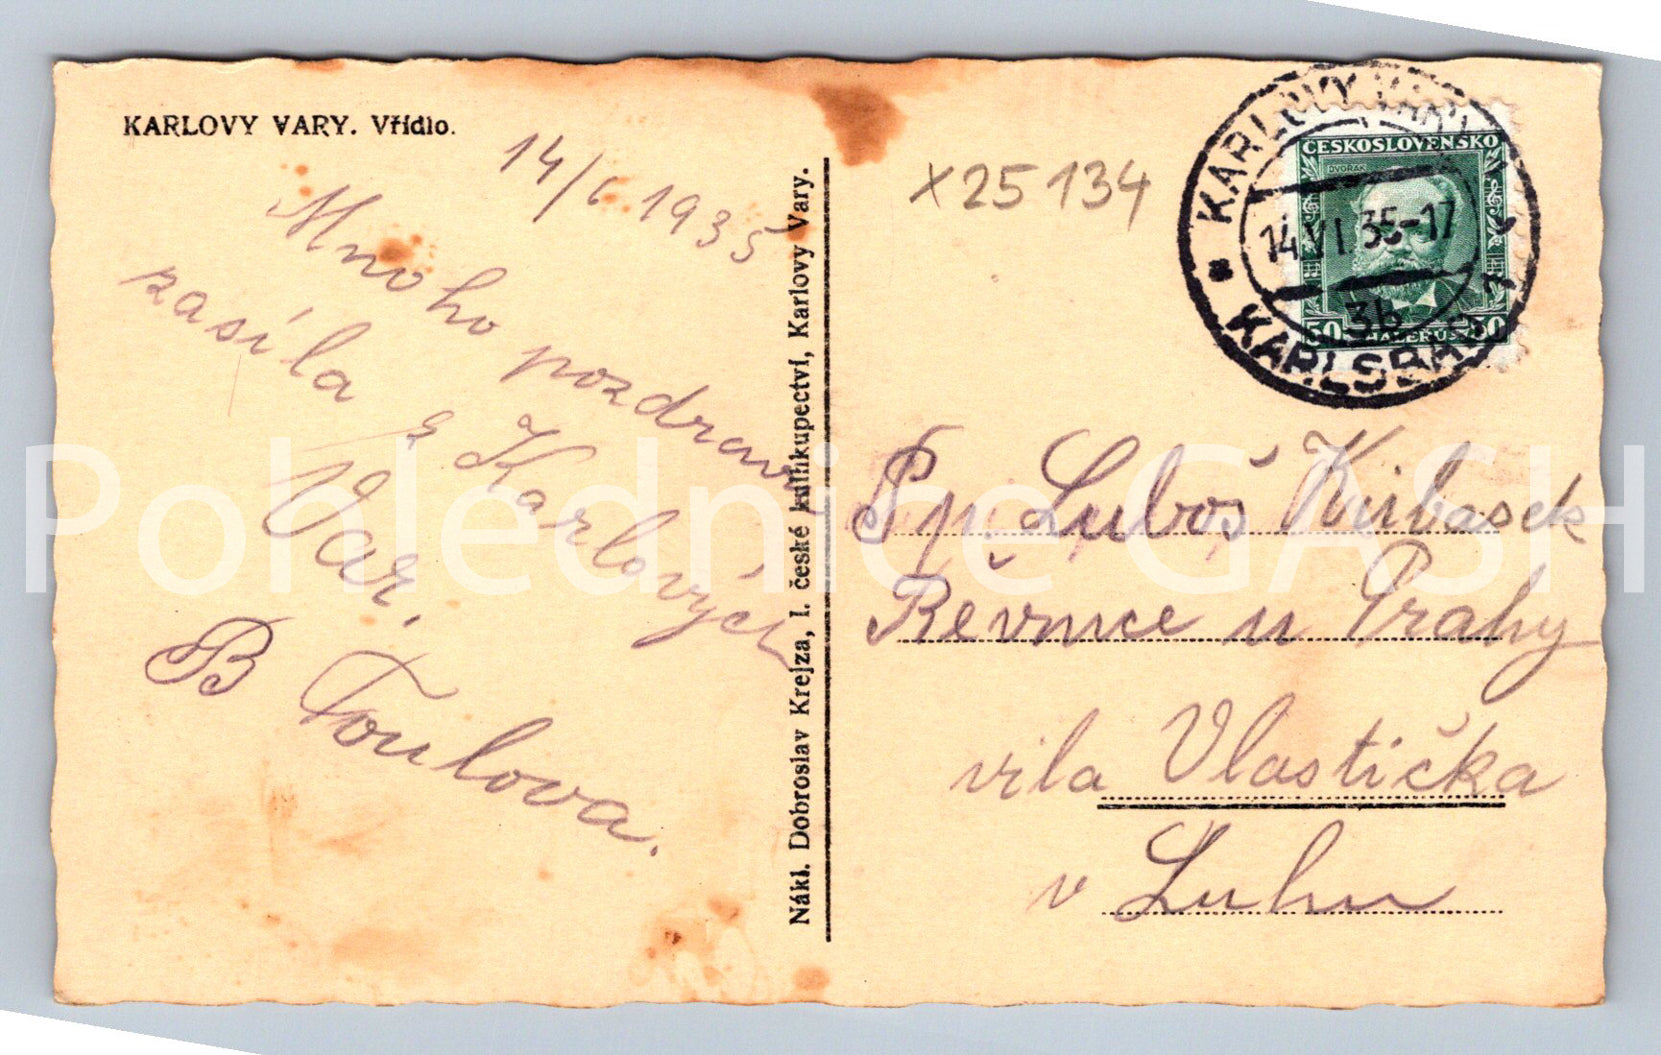 KARLOVY VARY. Vřídlo.
14/6 1935
Mnoho pozdravů
zasíla z Karlových
Var.
B Toulova.
Nákl. Dobroslav Krejza, I. české knihkupectví, Karlovy Vary.
X25134
KARLOVY VARY
14.VI.35-17
3b
KARLSBAD
ČESKOSLOVENSKO
DVOŘÁK
50 HALÉŘŮ 50
Pp. Luboš Kirbasek
Řevnice u Prahy
vila Vlastička
v Luhu
Pohlednice GASH